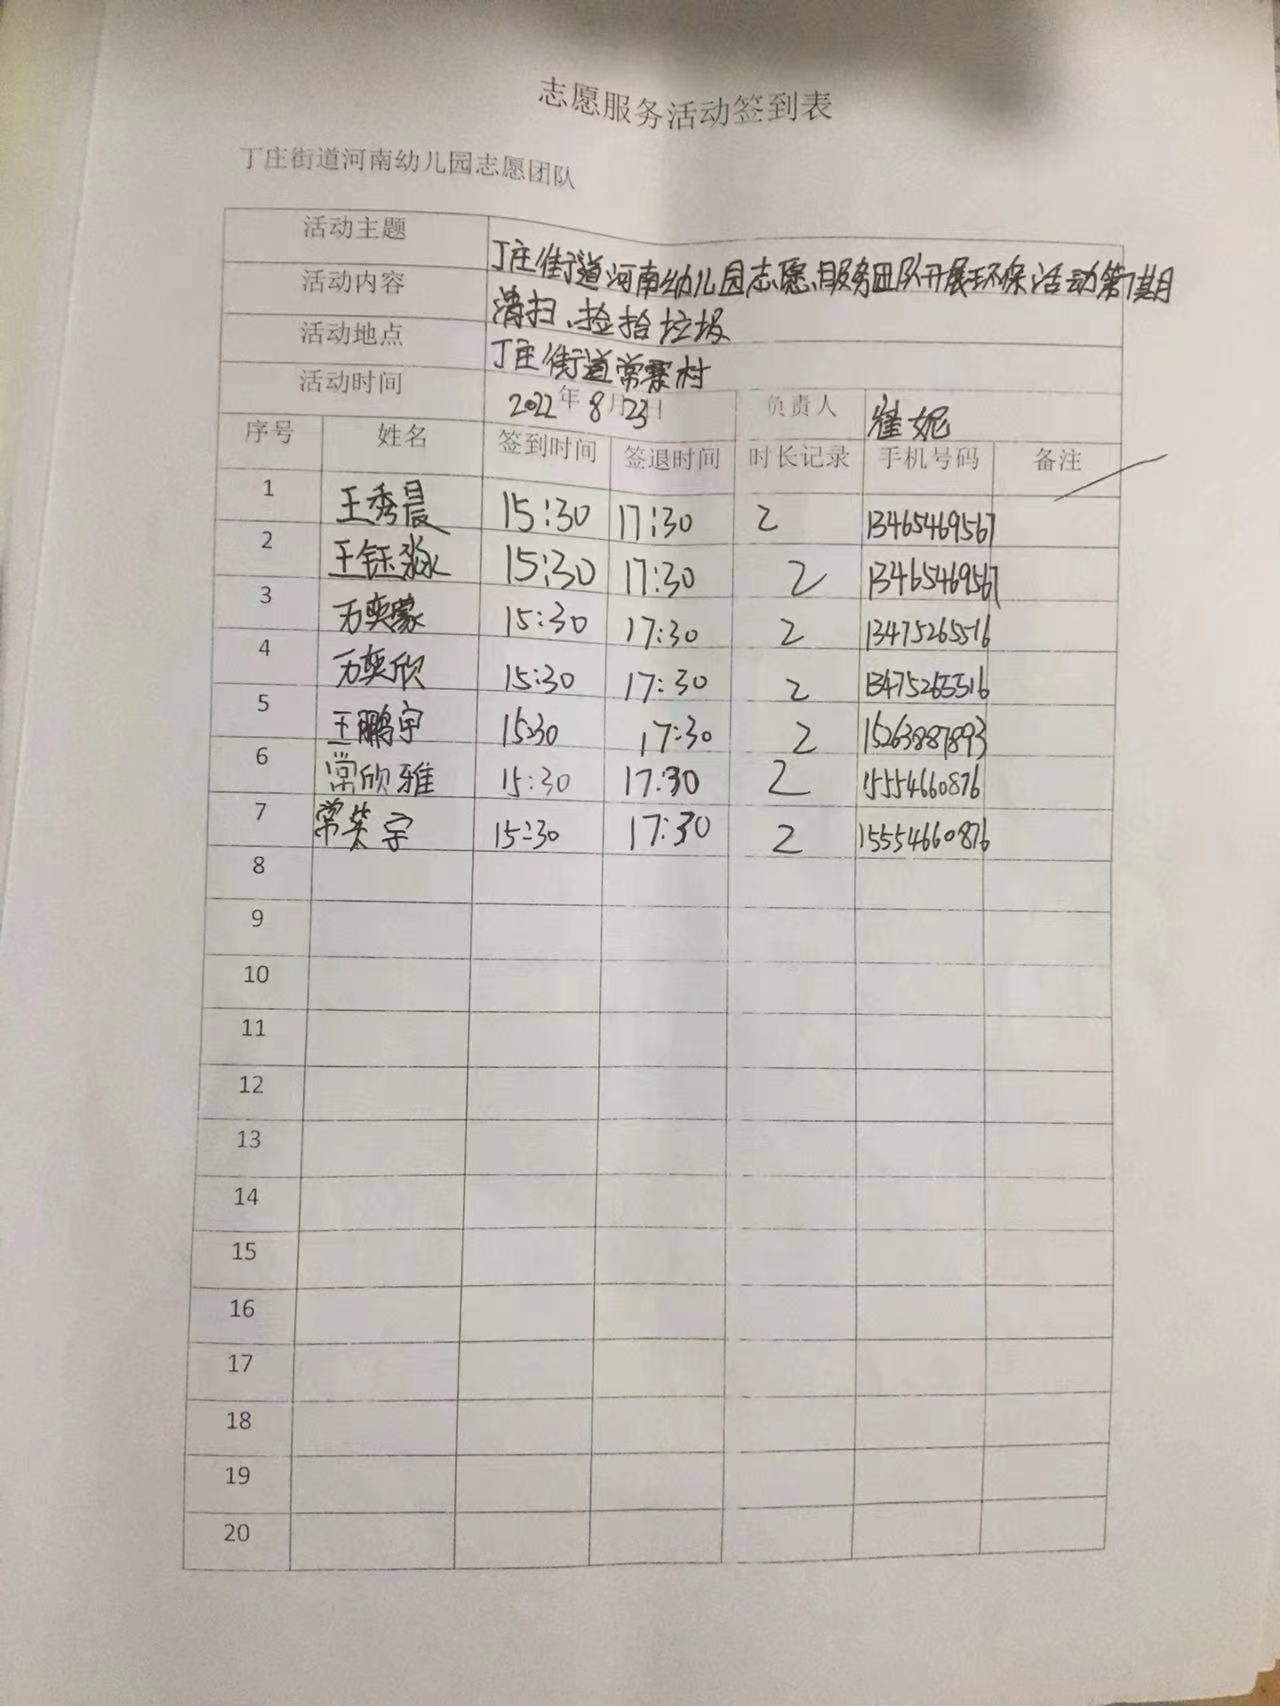 志愿服务活动签到表
丁庄街道河南幼儿园志愿团队
活动主题 丁庄街道河南幼儿园志愿服务团队开展环保活动第1期
活动内容 清扫、捡拾垃圾
活动地点 丁庄街道常寨村
活动时间 2022年8月23日 负责人 崔妮
序号 姓名 签到时间 签退时间 时长记录 手机号码 备注
1 王秀晨 15:30 17:30 2 13465469567
2 王钰淼 15:30 17:30 2 13465469567
3 万奕蒙 15:30 17:30 2 13475265516
4 万奕欣 15:30 17:30 2 13475265516
5 王鹏宇 15:30 17:30 2 15263887893
6 常欣雅 15:30 17:30 2 15554660876
7 常英宇 15:30 17:30 2 15554660876
8
9
10
11
12
13
14
15
16
17
18
19
20